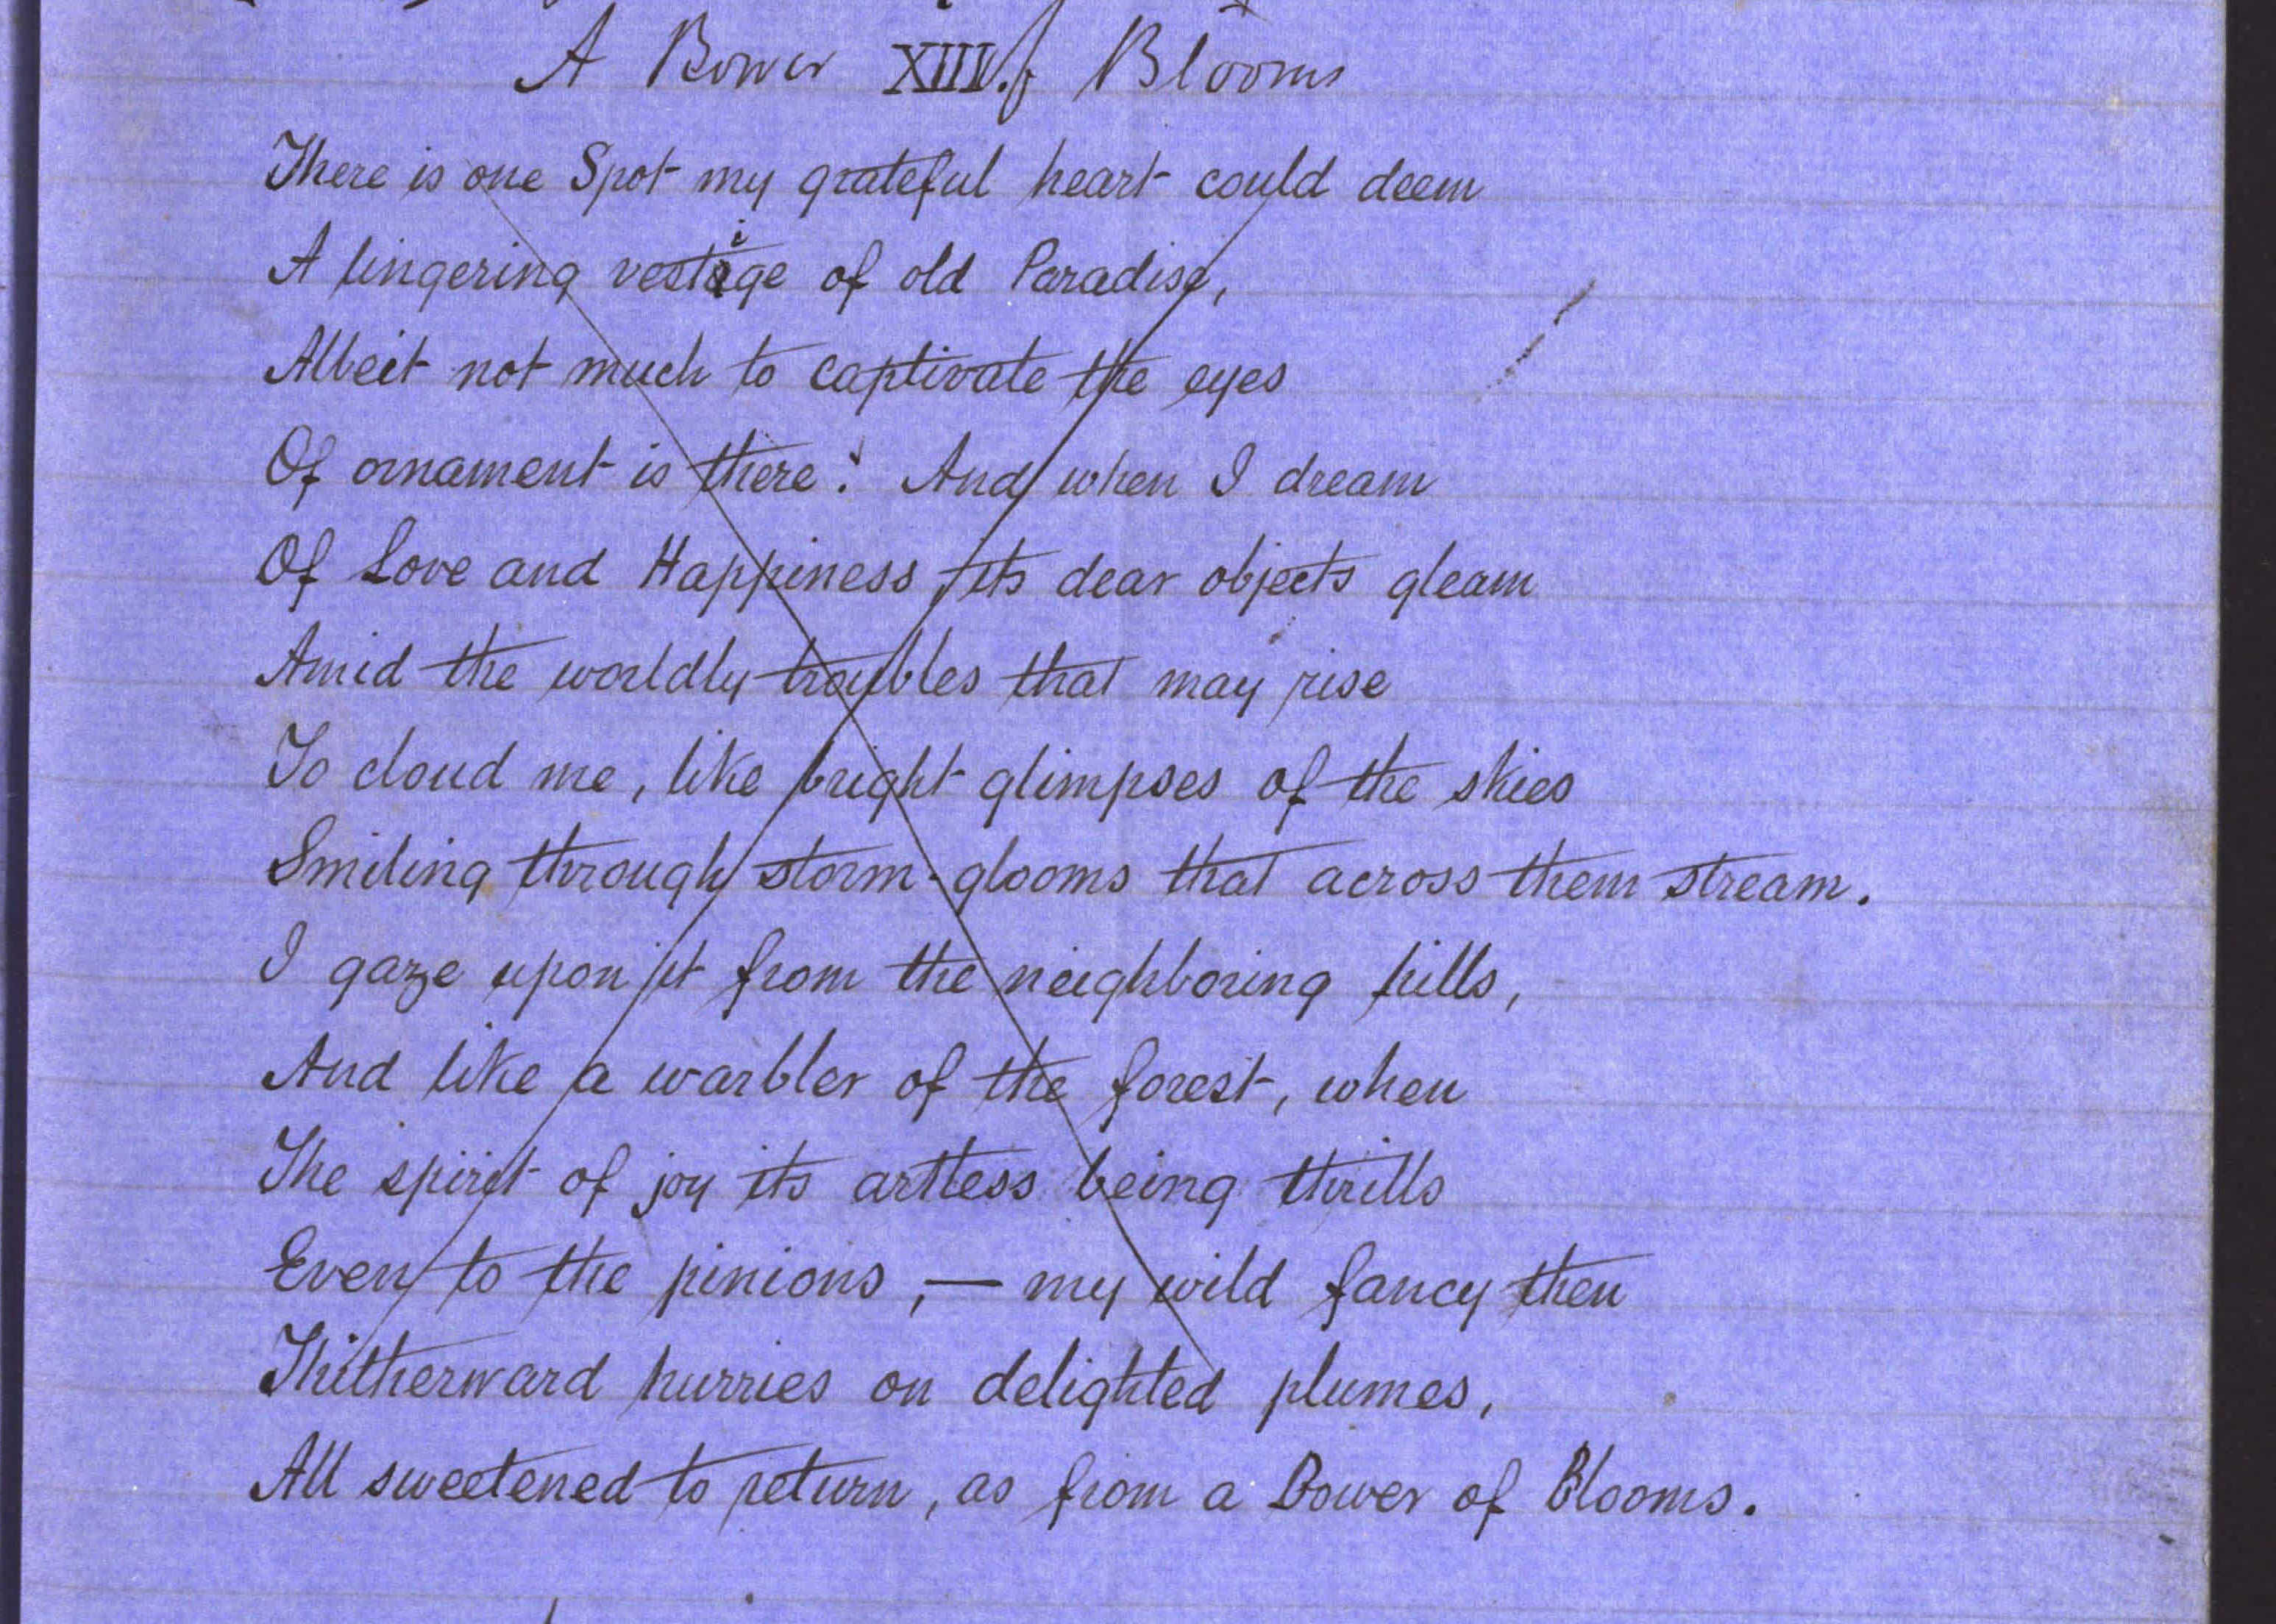 A Bower XIII. of Blooms
There is one Spot my grateful heart could deem
A lingering vestige of old Paradise,
Albeit not much to captivate the eyes
Of ornament is there: And when I dream
Of Love and Happiness, its dear objects gleam
Amid the worldly troubles that may rise
To cloud me, like bright glimpses of the skies
Smiling through storm-glooms that across them stream.
I gaze upon it from the neighboring hills,
And like a warbler of the forest, when
The spirit of joy its artless being thrills
Even to the pinions, — my wild fancy then
Thitherward hurries on delighted plumes,
All sweetened to return, as from a Bower of Blooms.